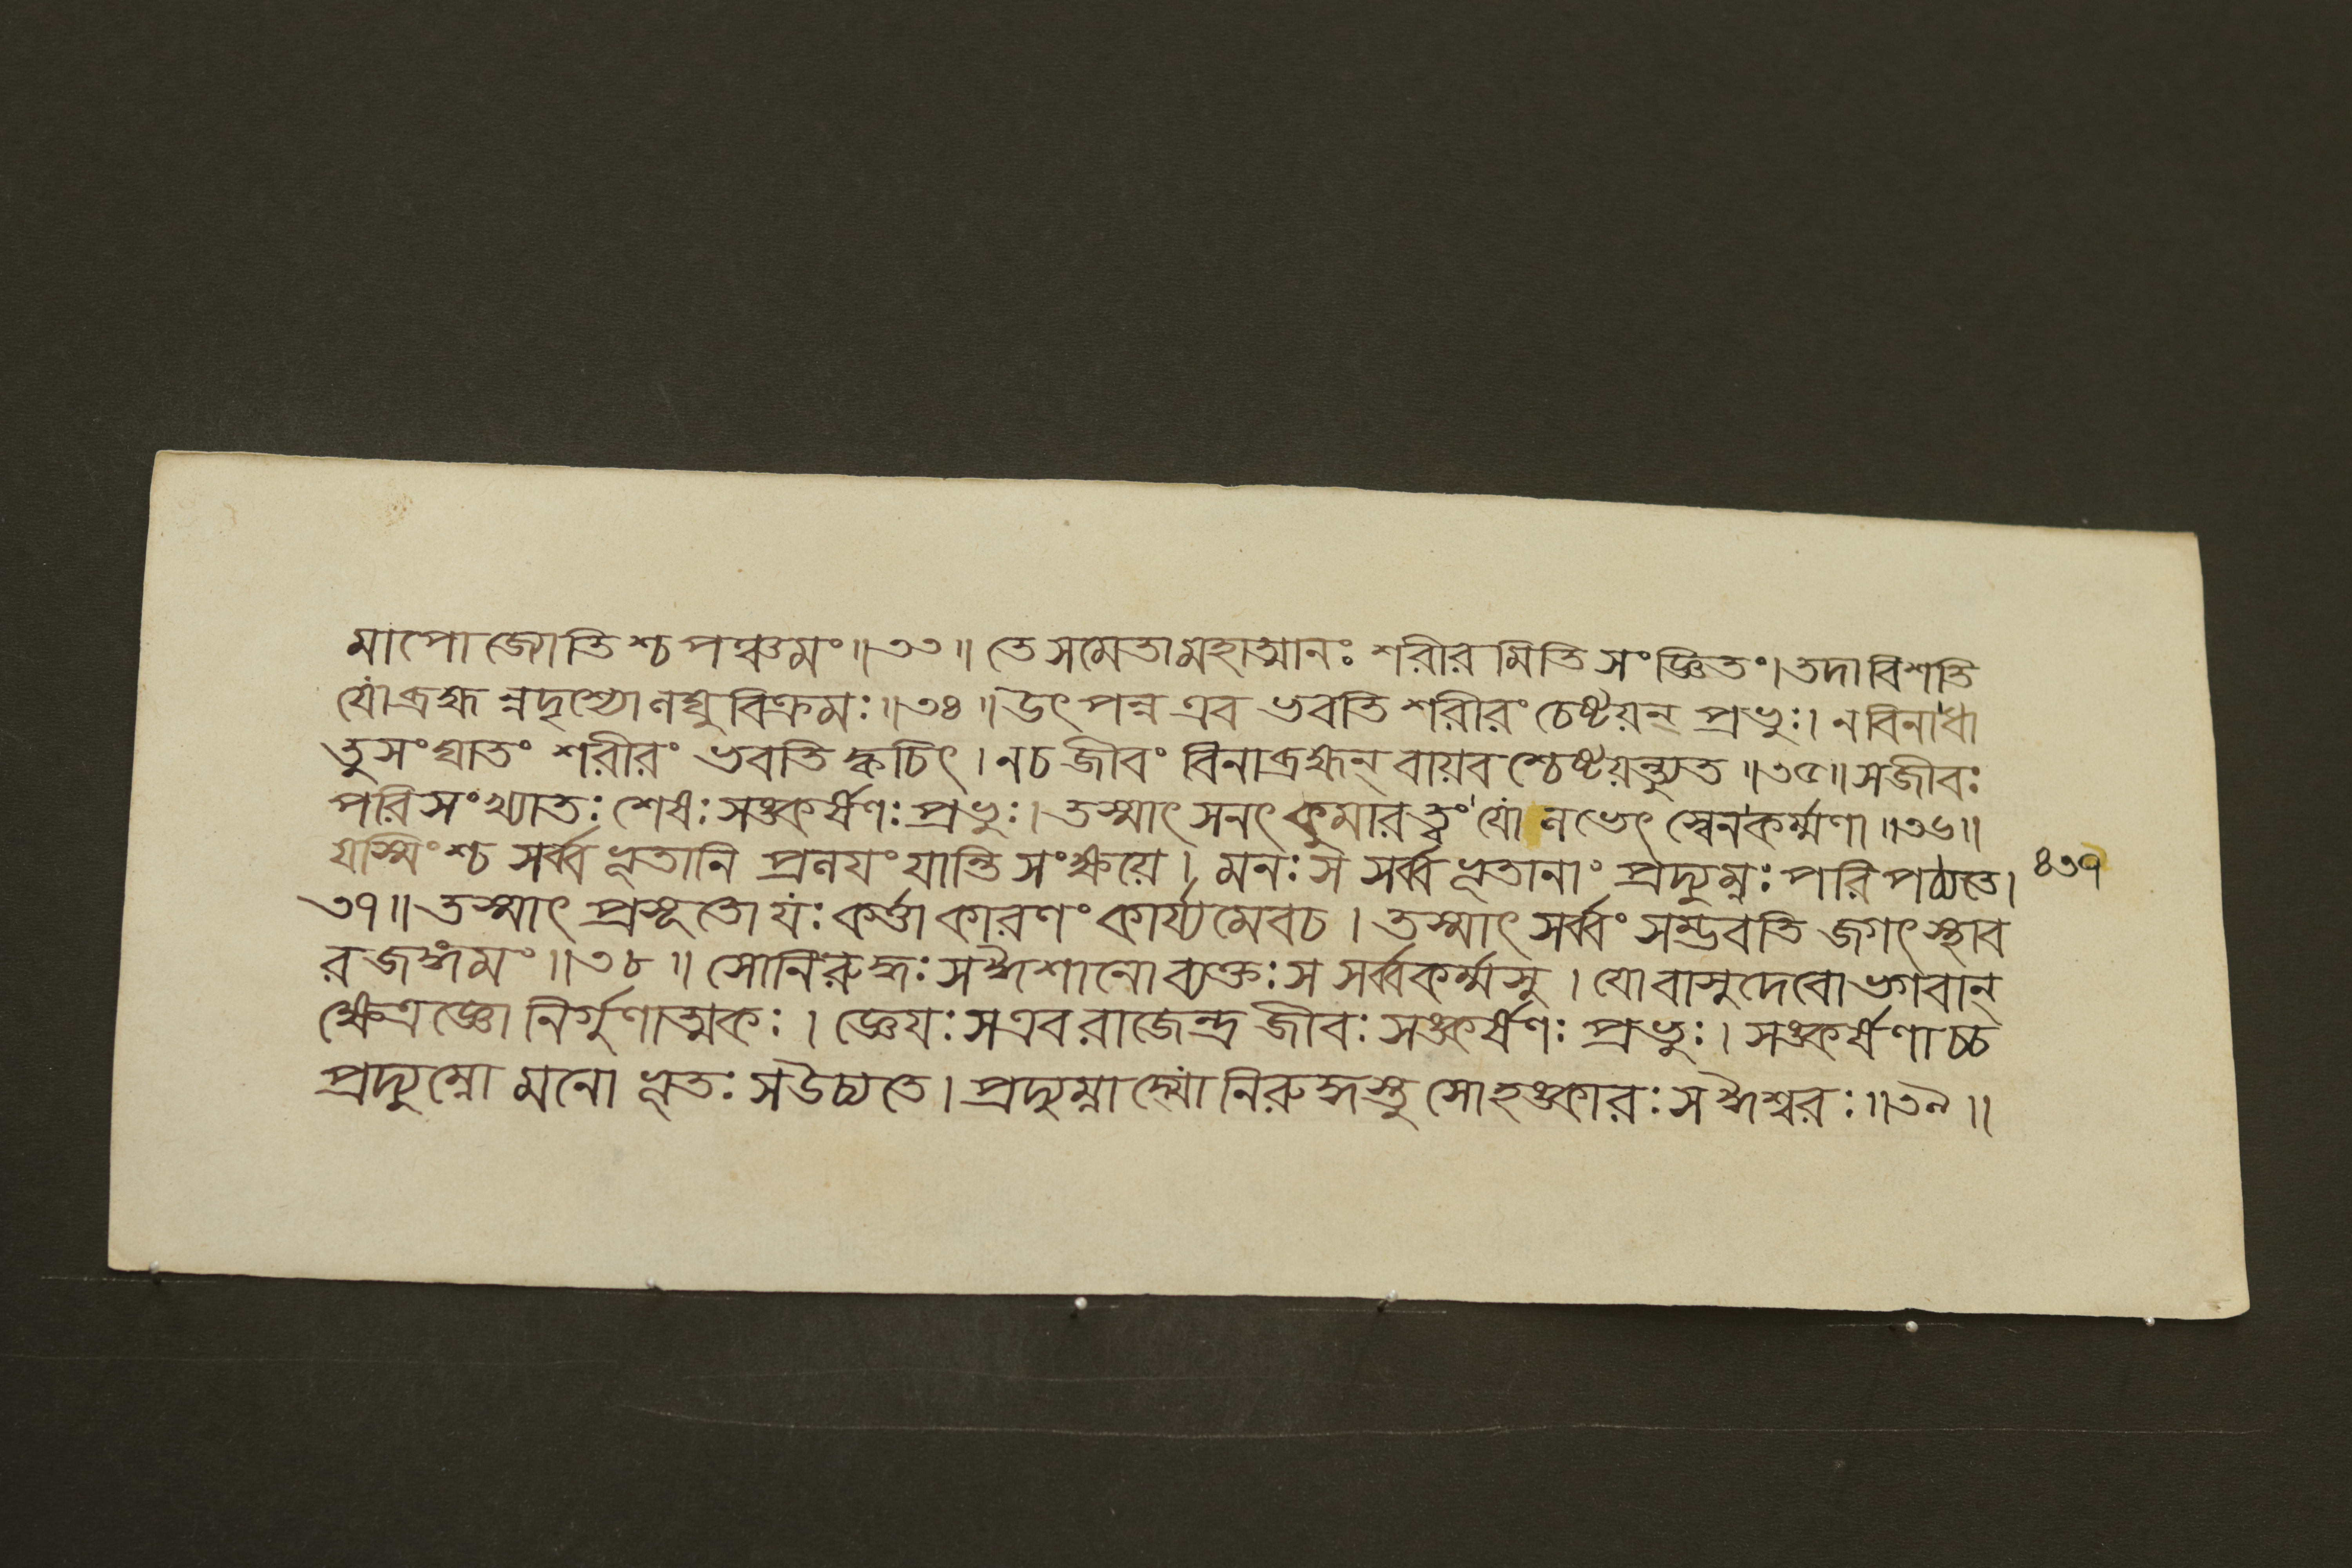 মাপো জ্যোতিশ্চ পঞ্চমং॥৩৩॥ তে সমেতা মহাত্মানঃ শরীরমিতি সংজ্ঞিতং। তদাবিশতি
যো ব্রহ্মন্নদৃশ্যো লঘুবিক্রমঃ॥৩৪॥ উৎপন্ন এব ভবতি শরীরং চেষ্টয়ন্ প্রভুঃ। ন বিনা ধা
তুসংঘাতং শরীরং ভবতি ক্বচিৎ। ন চ জীবং বিনা ব্রহ্মন্ বায়বশ্চেষ্টয়ন্ত্যুত॥৩৫॥ স জীবঃ
পরিসংখ্যাতঃ শেষঃ সঙ্কর্ষণঃ প্রভুঃ। তস্মাৎ সনৎকুমারত্বং যো লভেৎ স্বেন কর্ম্মণা॥৩৬॥
যস্মিংশ্চ সর্ব্বভূতানি প্রলয়ং যান্তি সংক্ষয়ে। মনঃ স সর্ব্বভূতানাং প্রদ্যুম্নঃ পরিপঠ্যতে। ৪৩৭
৩৭॥ তস্মাৎ প্রসূতো যঃ কর্ত্তা কারণং কার্য্যমেব চ। তস্মাৎ সর্ব্বং সম্ভবতি জগৎ স্থাব
রজঙ্গমং॥৩৮॥ সোনিরুদ্ধঃ স ঈশানো ব্যক্তঃ স সর্ব্বকর্ম্মসু। যো বাসুদেবো ভগবান্
ক্ষেত্রজ্ঞো নির্গুণাত্মকঃ। জ্ঞেয়ঃ স এব রাজেন্দ্র জীবঃ সঙ্কর্ষণঃ প্রভুঃ। সঙ্কর্ষণাচ্চ
প্রদ্যুম্নো মনোভূতঃ স উচ্যতে। প্রদ্যুম্নাদ্যোনিরুদ্ধস্তু সোহঙ্কারঃ স ঈশ্বরঃ॥৩৯॥